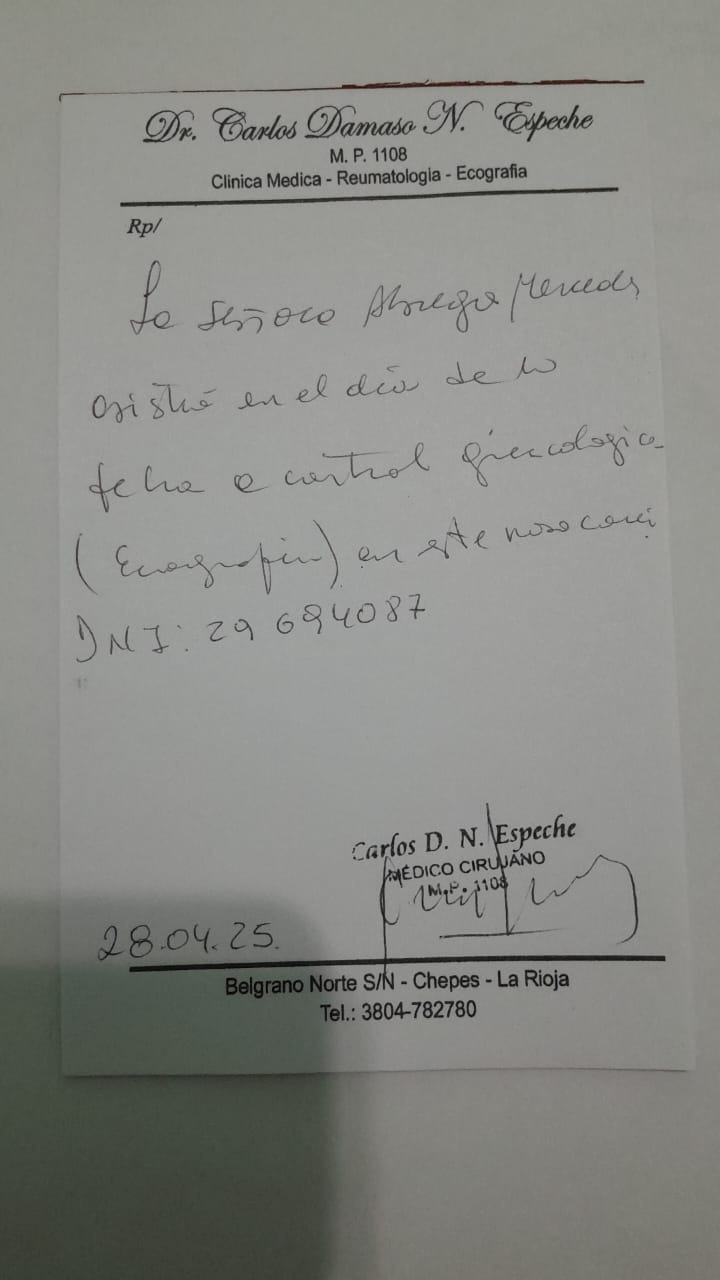 Dr. Carlos Damaso N. Espeche
M. P. 1108
Clinica Medica - Reumatologia - Ecografia
Rp/
La señora Abrego Mercedes
asistió en el día de la
fecha a control ginecologico
(Ecografia) en este nosocomi
DNI: 29 694087
Carlos D. N. Espeche
MÉDICO CIRUJANO
M.P. 1108
28.04.25.
Belgrano Norte S/N - Chepes - La Rioja
Tel.: 3804-782780